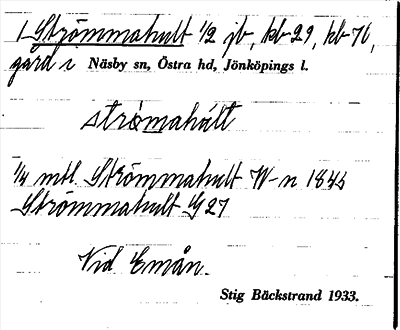 1 Strömmahult 1/2 jb, kb 29, kb 70,
gård i Näsby sn, Östra hd, Jönköpings l.
strömahúlt
1/4 mtl Strömmahult W-n 1845
Strömmahult G 27
Vid Emån.
Stig Bäckstrand 1933.